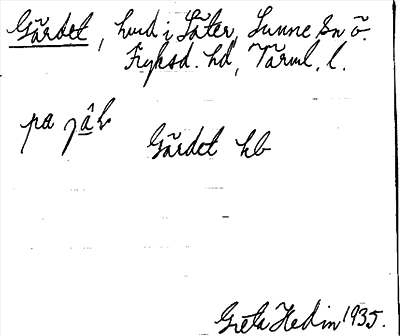 Gärdet, hmd i Säter, Sunne sn ö.
Fryksd. hd, Värml. l.
på jâḷ
Gärdet kb
Greta Hedin 1935.